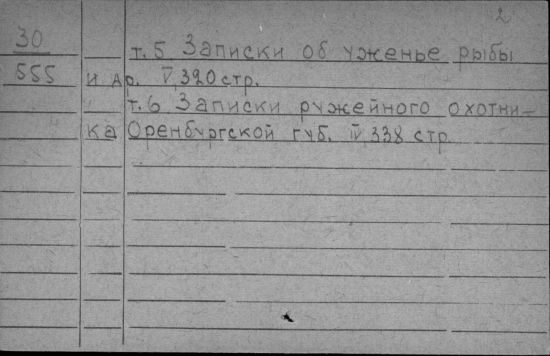 2
30
т. 5 Записки об уженье рыбы
555
и др. V, 320 стр.
т. 6 Записки ружейного охотни-
ка Оренбургской губ. IV, 338 стр.